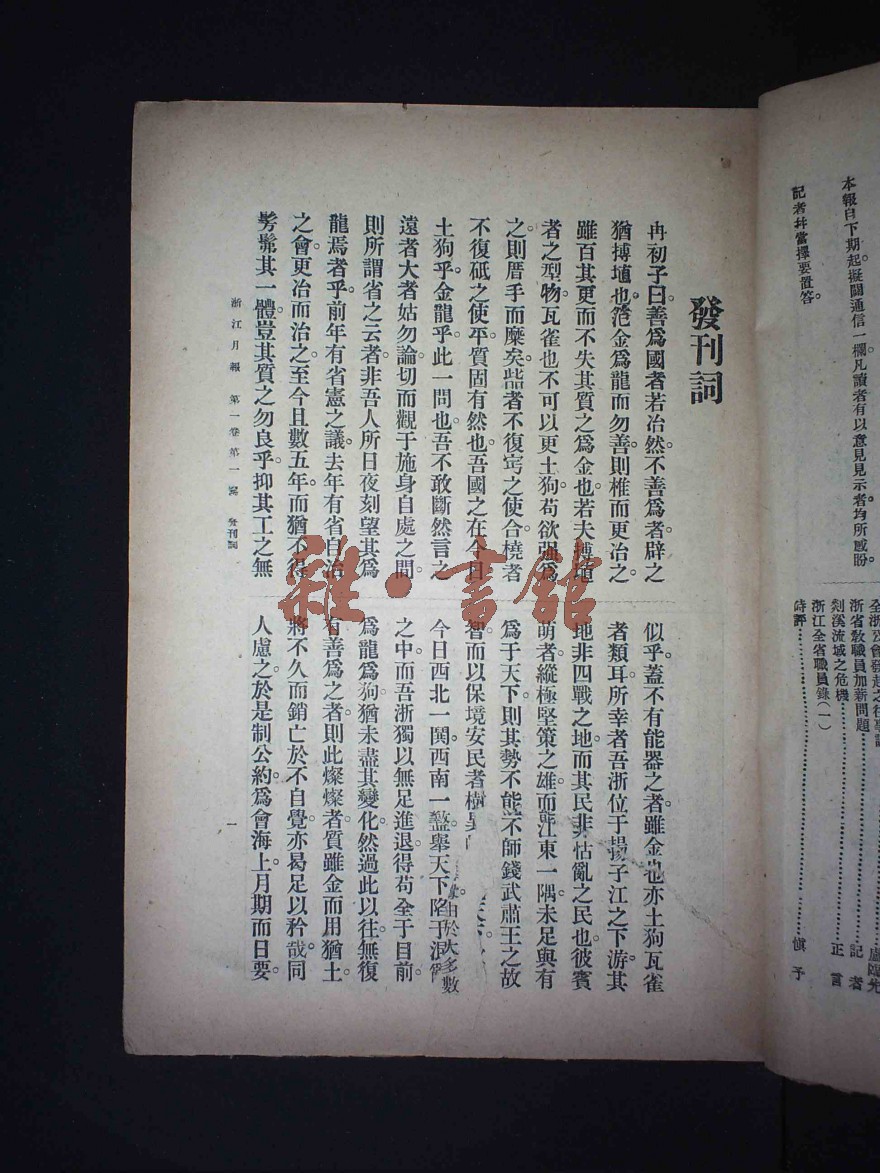 本報自下期起擬闢通信一欄凡讀者有以意見見示者均所感盼
記者幷當擇要置答。
浙省教職員加薪問題……記者
剡溪流域之危機……正言
浙江全省職員錄(一)
時評……愼予
發刊詞
冉初子曰善爲國者若冶然不善爲者辟之
猶搏埴也。范金爲龍而勿善則椎而更冶之。
雖百其更而不失其質之爲金也若夫搏埴
者之型物。瓦雀也不可以更土狗苟欲强爲
之則厝手而糜矣。呰者不復窌之使合橈者
不復砥之使平質固有然也吾國之在今日
土狗乎。金龍乎。此一問也。吾不敢斷然言之
遠者大者姑勿論切而觀于施身自處之閒
則所謂省之云者。非吾人所日夜刻望其爲
龍焉者乎前年有省憲之議。去年有省自治
之會。更冶而治之。至今且數五年。而猶不得
髣髴其一體豈其質之勿良乎抑其工之無
似乎。蓋不有能器之者。雖金也亦土狗瓦雀
者類耳所幸者吾浙位于揚子江之下游其
地非四戰之地而其民非怙亂之民也彼賓
萌者縱極堅策之雄而江東一隅未足與有
爲于天下則其勢不能不師錢武肅王之故
智而以保境安民者
由於大多數
今日西北一鬨西南一盭舉天下陷于
之中而吾浙獨以無足進退得苟全于目前
爲龍爲狗猶未盡其變化然過此以往無復
有善爲之者。則此燦燦者質雖金而用猶土
將不久而銷亡於不自覺亦曷足以矜哉。同
人慮之於是制公約。爲會海上月期而日要。
浙江月報 第一卷第一號 發刊詞
一
雜·書館